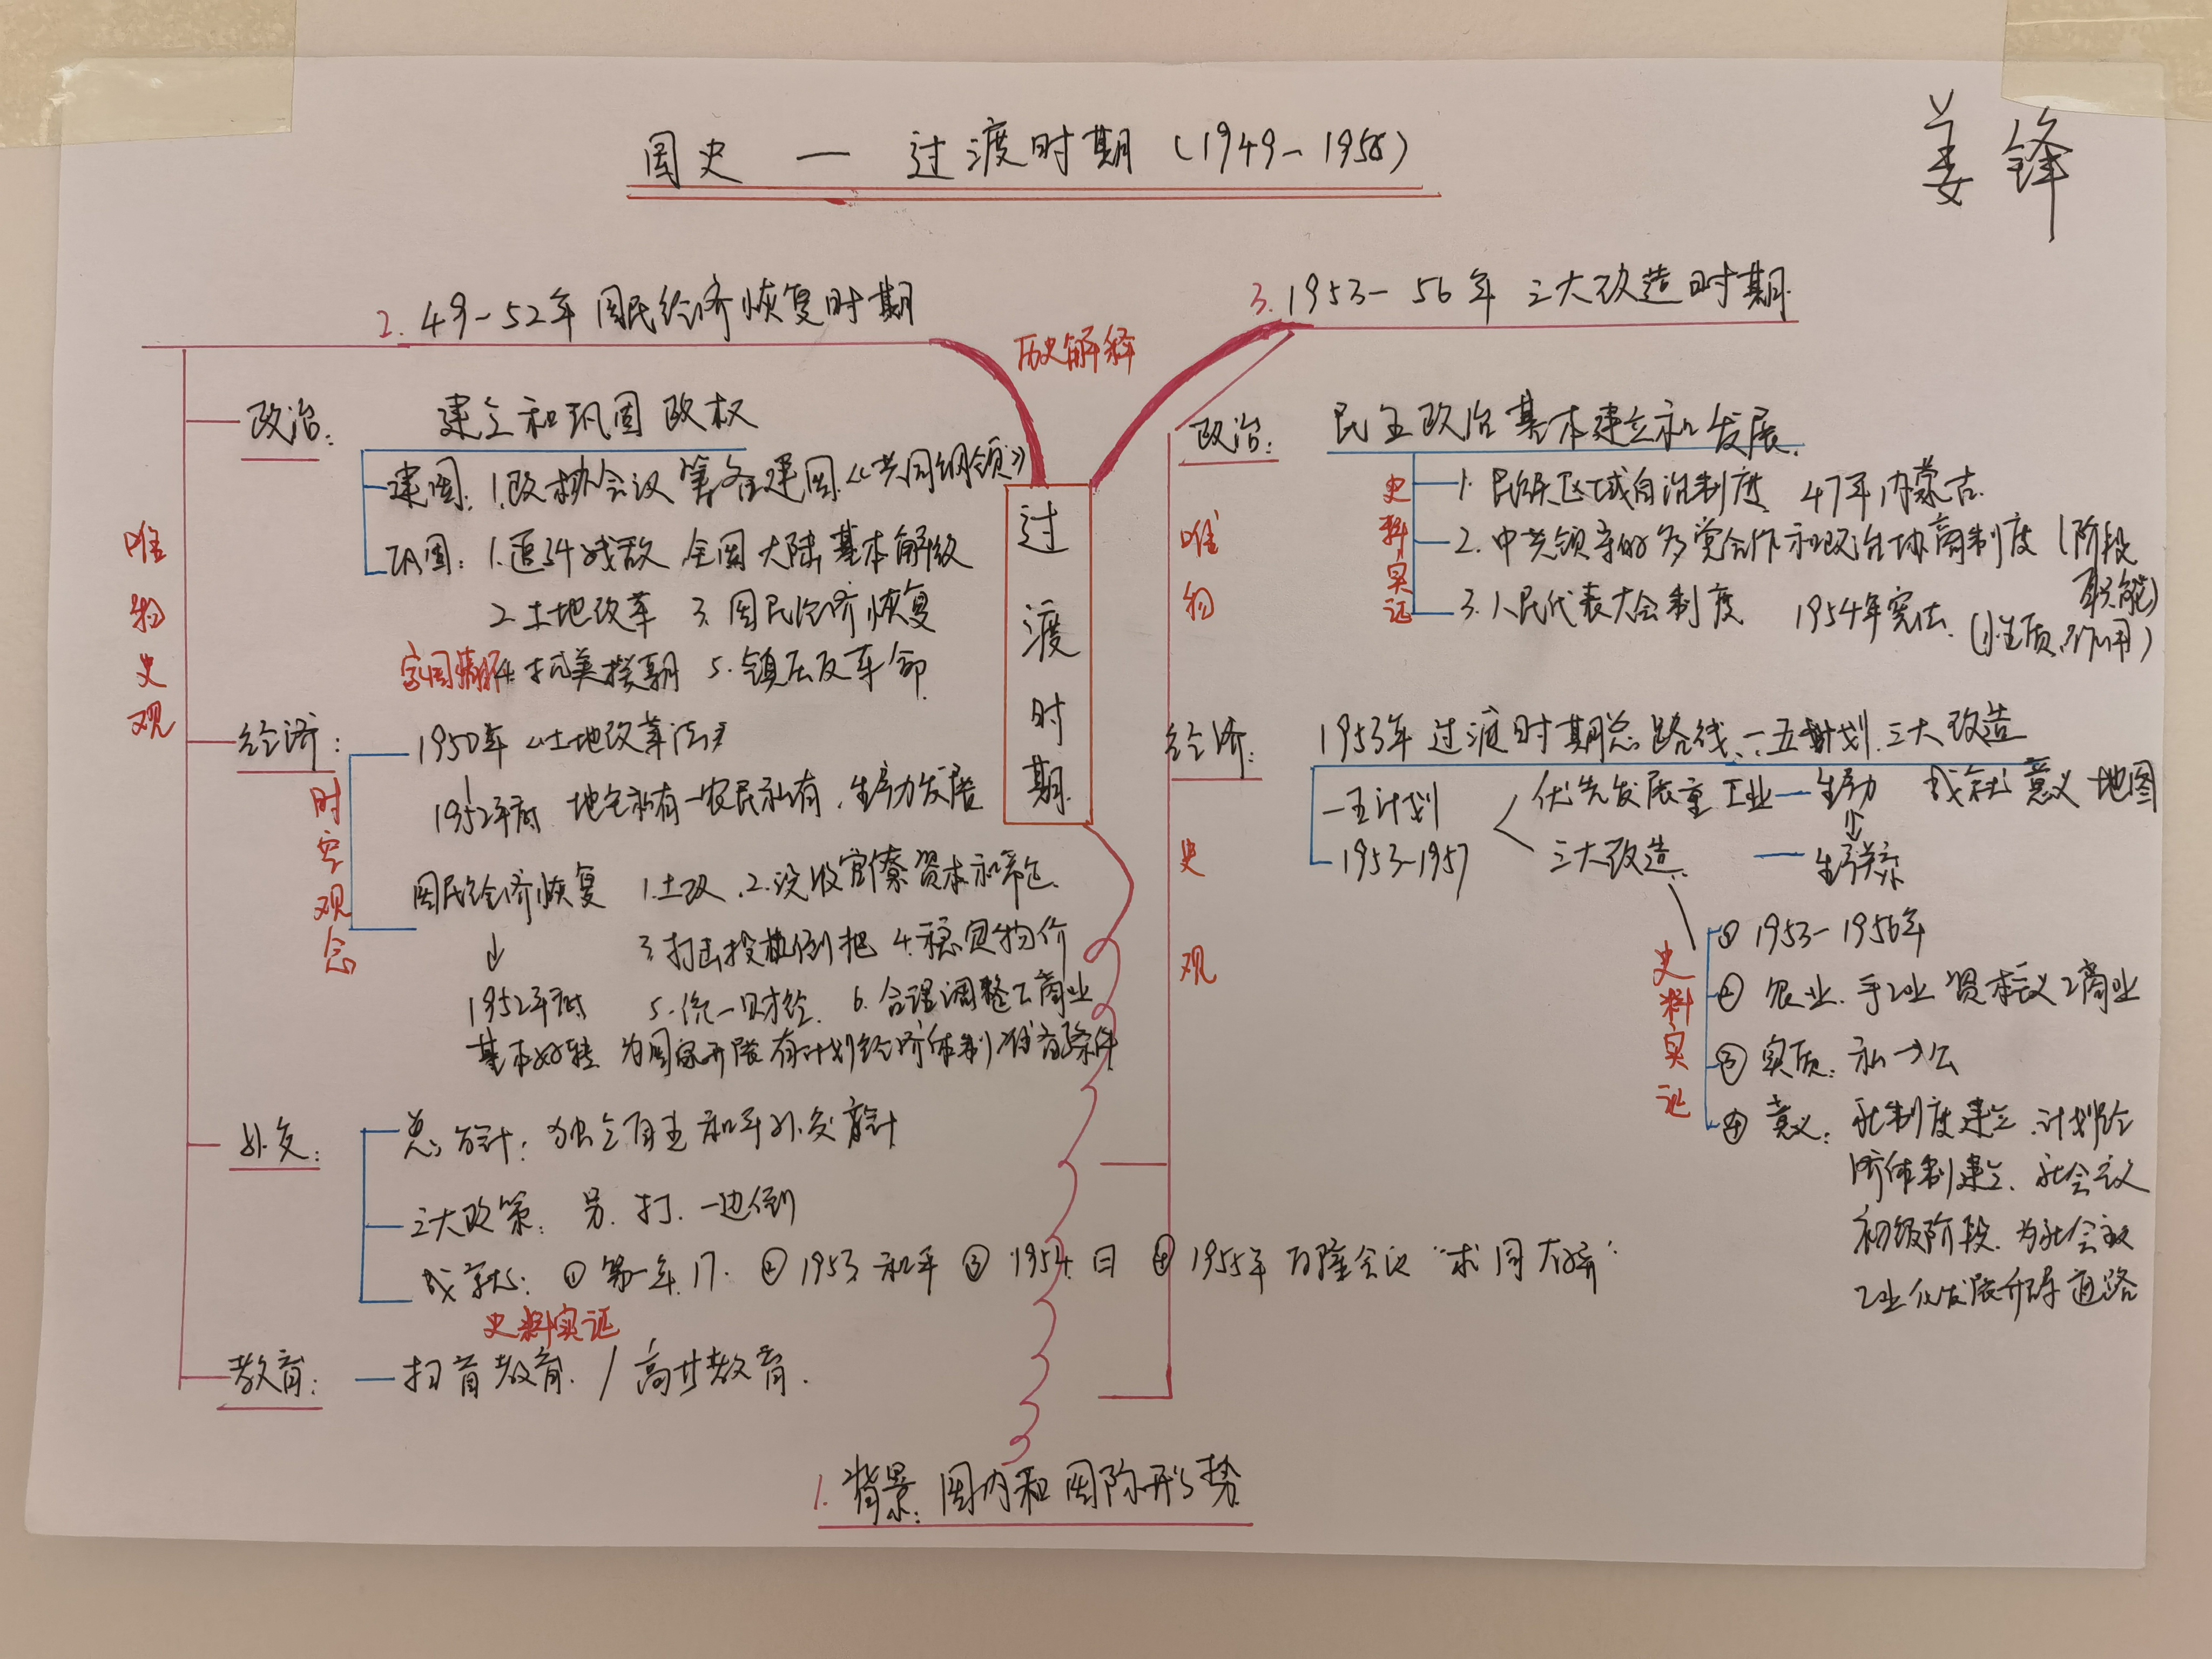 国史 — 过渡时期（1949－1956）
姜锋
2. 49－52年国民经济恢复时期
历史解释
唯物史观
政治：
建立和巩固政权
建国：1.政协会议 筹备建国《共同纲领》
巩固：1.追歼残敌 全国大陆基本解放
2.土地改革 3.国民经济恢复
家国情怀
4.抗美援朝 5.镇压反革命
经济：
时空观念
1950年《土地改革法》
1952年底 地主私有—农民私有，生产力发展
国民经济恢复 1.土改.2.没收官僚资本和帝
↓ 3.打击投机倒把 4.稳定物价
1952年底 5.统一财经. 6.合理调整工商业
基本好转 为国家开展有计划经济体制准备条件
外交：
总方针：独立自主和平外交方针
三大政策：另.打.一边倒
成就：① 第一年.17. ② 1953 和平 ③ 1954 日 ④ 1955年 万隆会议“求同存异”
史料实证
教育：
扫盲教育. / 高井教育.
过渡时期
3. 1953－56年 三大改造时期.
唯物史观
政治：
民主政治基本建立和发展.
史料实证
1. 民族区域自治制度 47年内蒙古.
2. 中共领导的多党合作和政治协商制度（阶段
职能）
3. 人民代表大会制度 1954年宪法.（性质.作用）
经济：
1953年过渡时期总路线.一五计划.三大改造
一五计划
1953－1957
优先发展重工业—生产力 成就 意义 地图
三大改造. — 生产关系
史料实证
① 1953－1956年
② 农业.手工业 资本主义工商业
③ 实质：私→公
④ 意义：社制度建立.计划经
济体制建立.社会主义
初级阶段.为社会主义
工业化发展开辟道路
1. 背景：国内和国际形势